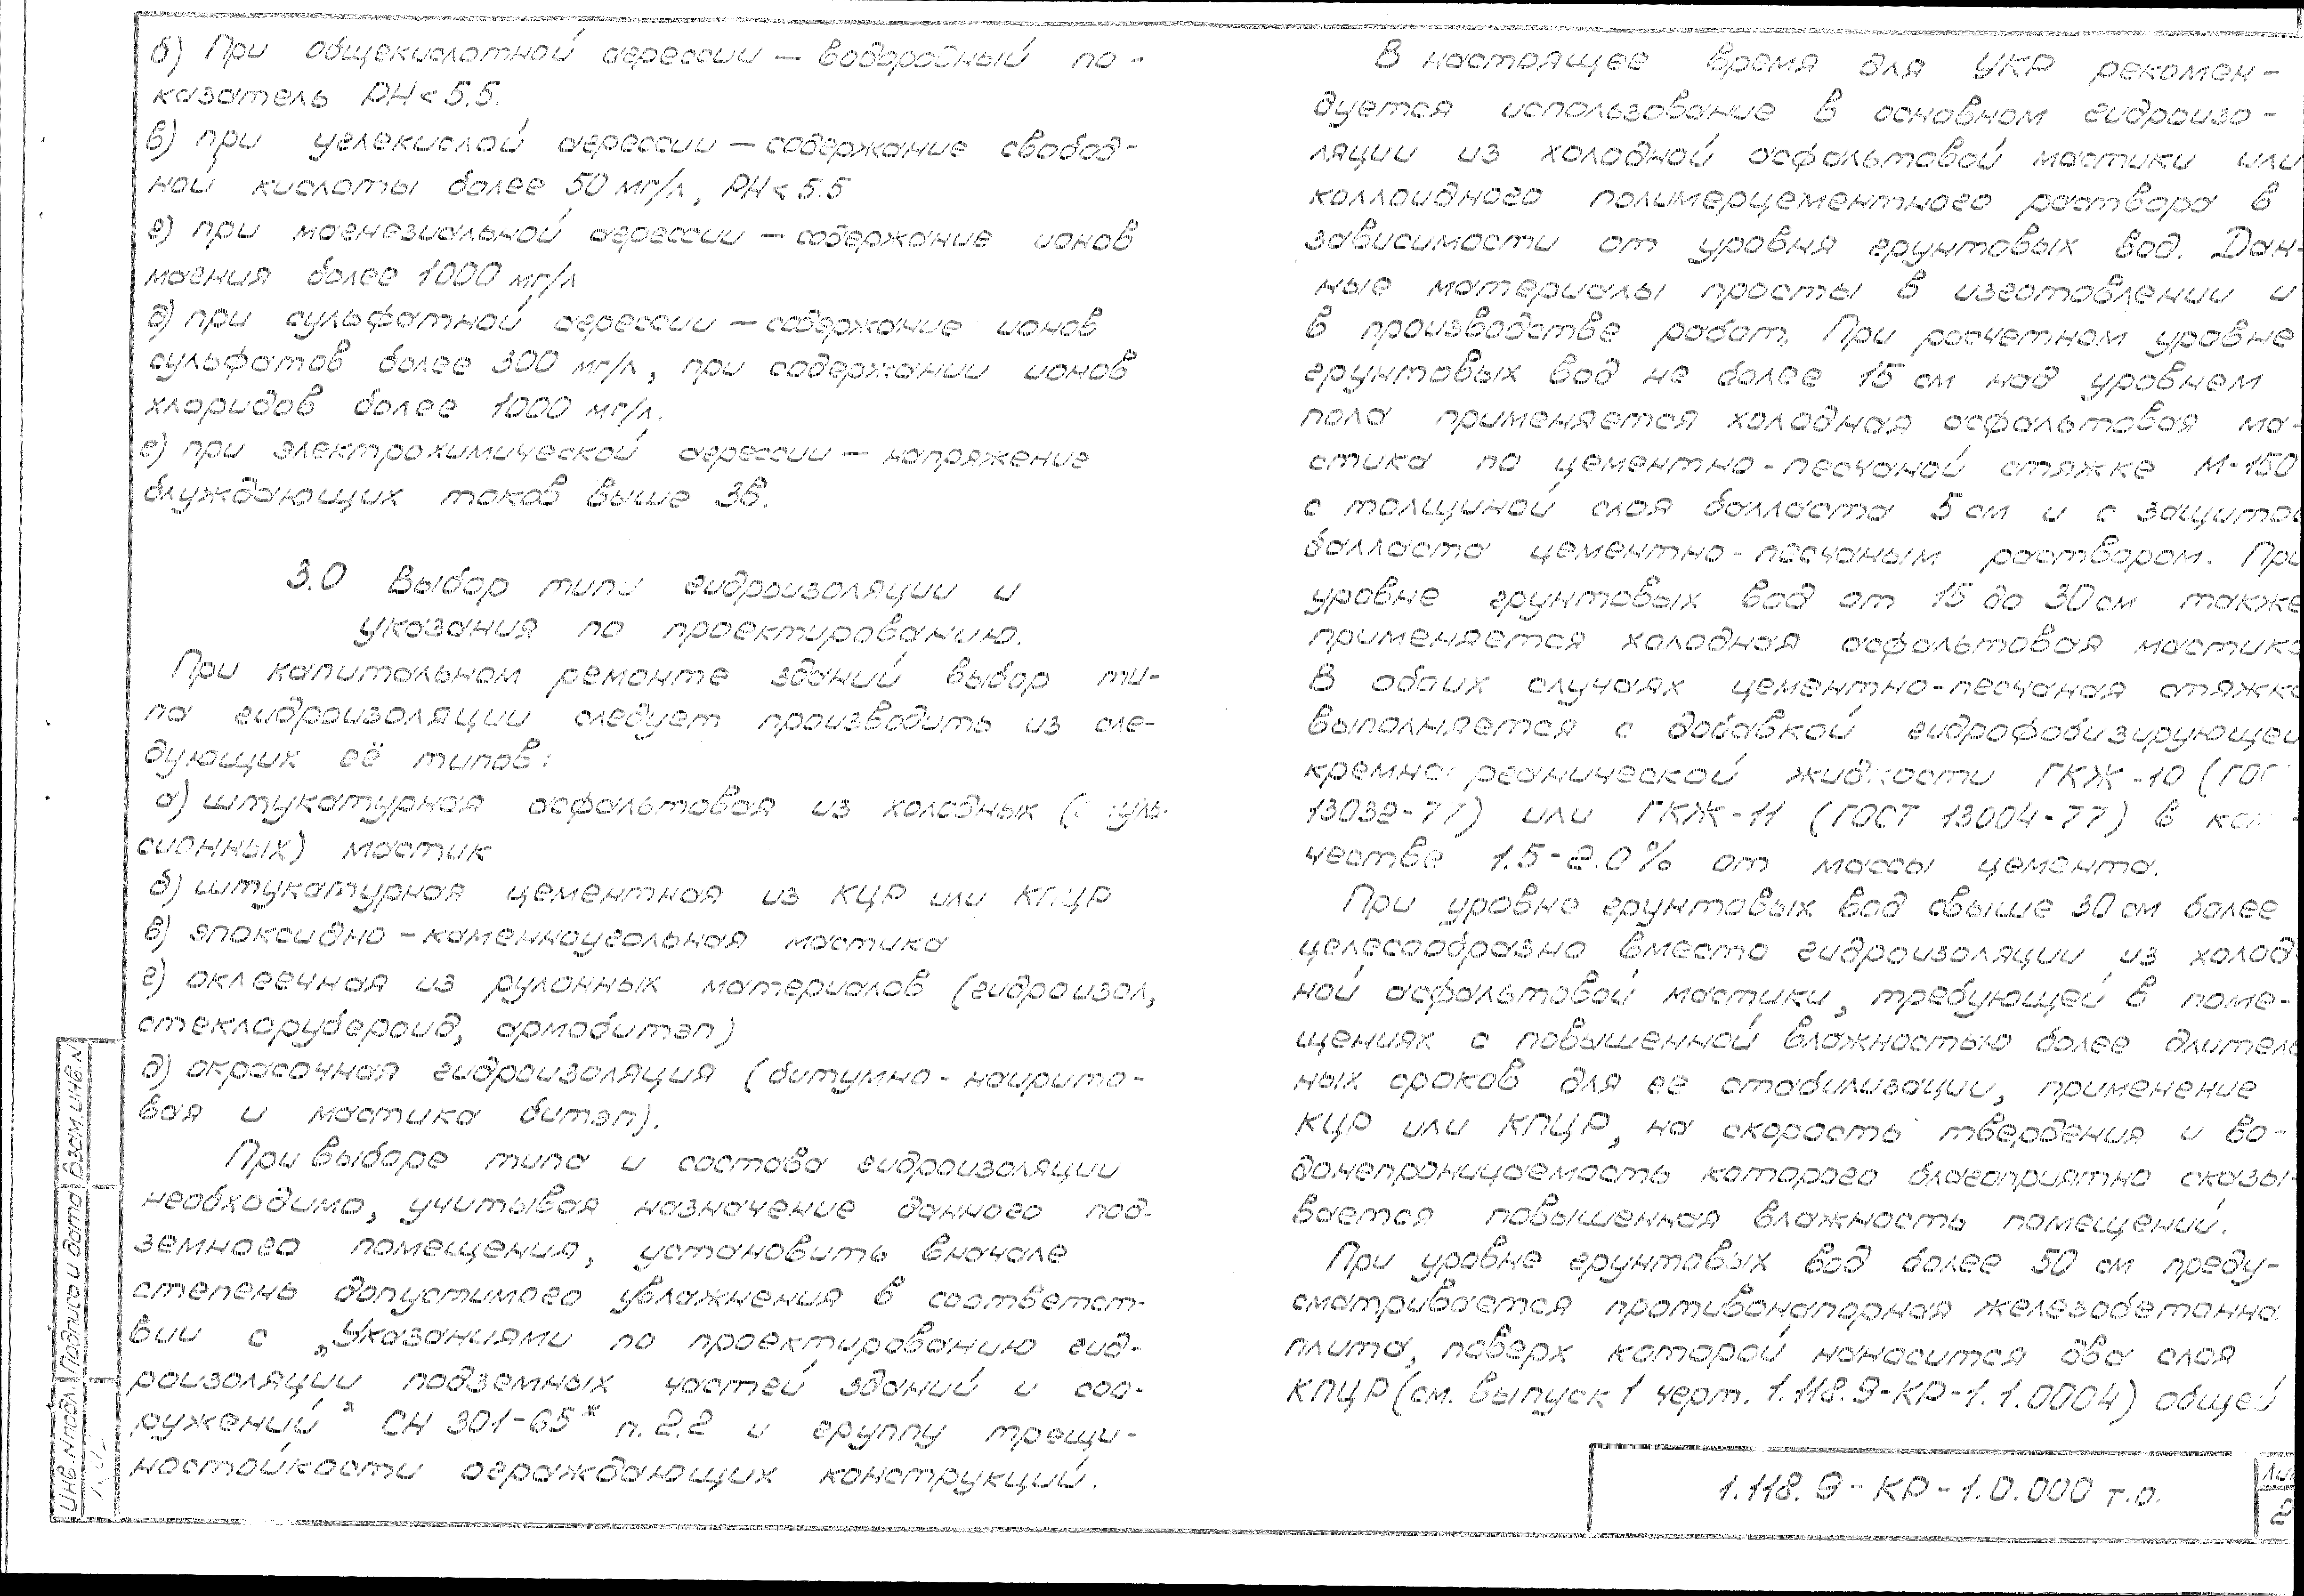 б) При общекислотной агрессии – водородный по-
казатель РН < 5.5.
в) при углекислой агрессии – содержание свобод-
ной кислоты более 50 мг/л, РН < 5.5
г) при магнезиальной агрессии – содержание ионов
магния более 1000 мг/л
д) при сульфатной агрессии – содержание ионов
сульфатов более 300 мг/л, при содержании ионов
хлоридов более 1000 мг/л.
е) при электрохимической агрессии – напряжение
блуждающих токов выше 3в.
3.0 Выбор типа гидроизоляции и
указания по проектированию.
При капитальном ремонте зданий выбор ти-
па гидроизоляции следует производить из сле-
дующих её типов:
а) штукатурная асфальтовая из холодных (эмуль-
сионных) мастик
б) штукатурная цементная из КЦР или КПЦР
в) эпоксидно-каменноугольная мастика
г) оклеечная из рулонных материалов (гидроизол,
стеклорубероид, армобитэп)
д) окрасочная гидроизоляция (битумно-наирито-
вая и мастика битэп).
При выборе типа и состава гидроизоляции
необходимо, учитывая назначение данного под-
земного помещения, установить вначале
степень допустимого увлажнения в соответст-
вии с „Указаниями по проектированию гид-
роизоляции подземных частей зданий и соо-
ружений" СН 301-65* п. 2.2 и группу трещи-
ностойкости ограждающих конструкций.
В настоящее время для УКР рекомен-
дуется использование в основном гидроизо-
ляции из холодной асфальтовой мастики или
коллоидного полимерцементного раствора в
зависимости от уровня грунтовых вод. Дан-
ные материалы просты в изготовлении и
в производстве работ. При расчетном уровне
грунтовых вод не более 15 см над уровнем
пола применяется холодная асфальтовая ма-
стика по цементно-песчаной стяжке М-150
с толщиной слоя балласта 5 см и с защитой
балласта цементно-песчаным раствором. При
уровне грунтовых вод от 15 до 30 см также
применяется холодная асфальтовая мастика
В обоих случаях цементно-песчаная стяжка
выполняется с добавкой гидрофобизирующей
кремнеорганической жидкости ГКЖ-10 (ГОСТ
13032-77) или ГКЖ-11 (ГОСТ 13004-77) в коли-
честве 1.5-2.0% от массы цемента.
При уровне грунтовых вод свыше 30 см более
целесообразно вместо гидроизоляции из холод-
ной асфальтовой мастики, требующей в поме-
щениях с повышенной влажностью более длитель
ных сроков для ее стабилизации, применение
КЦР или КПЦР, на скорость твердения и во-
донепроницаемость которого благоприятно сказы-
вается повышенная влажность помещений.
При уровне грунтовых вод более 50 см преду-
сматривается противонапорная железобетонна
плита, поверх которой наносится два слоя
КПЦР (см. выпуск 1 черт. 1.118.9-КР-1.1.0004) общей
1.118.9-КР-1.0.000 т.о.
Лис
2
Инв. N подл. Подпись и дата Взам. инв. N